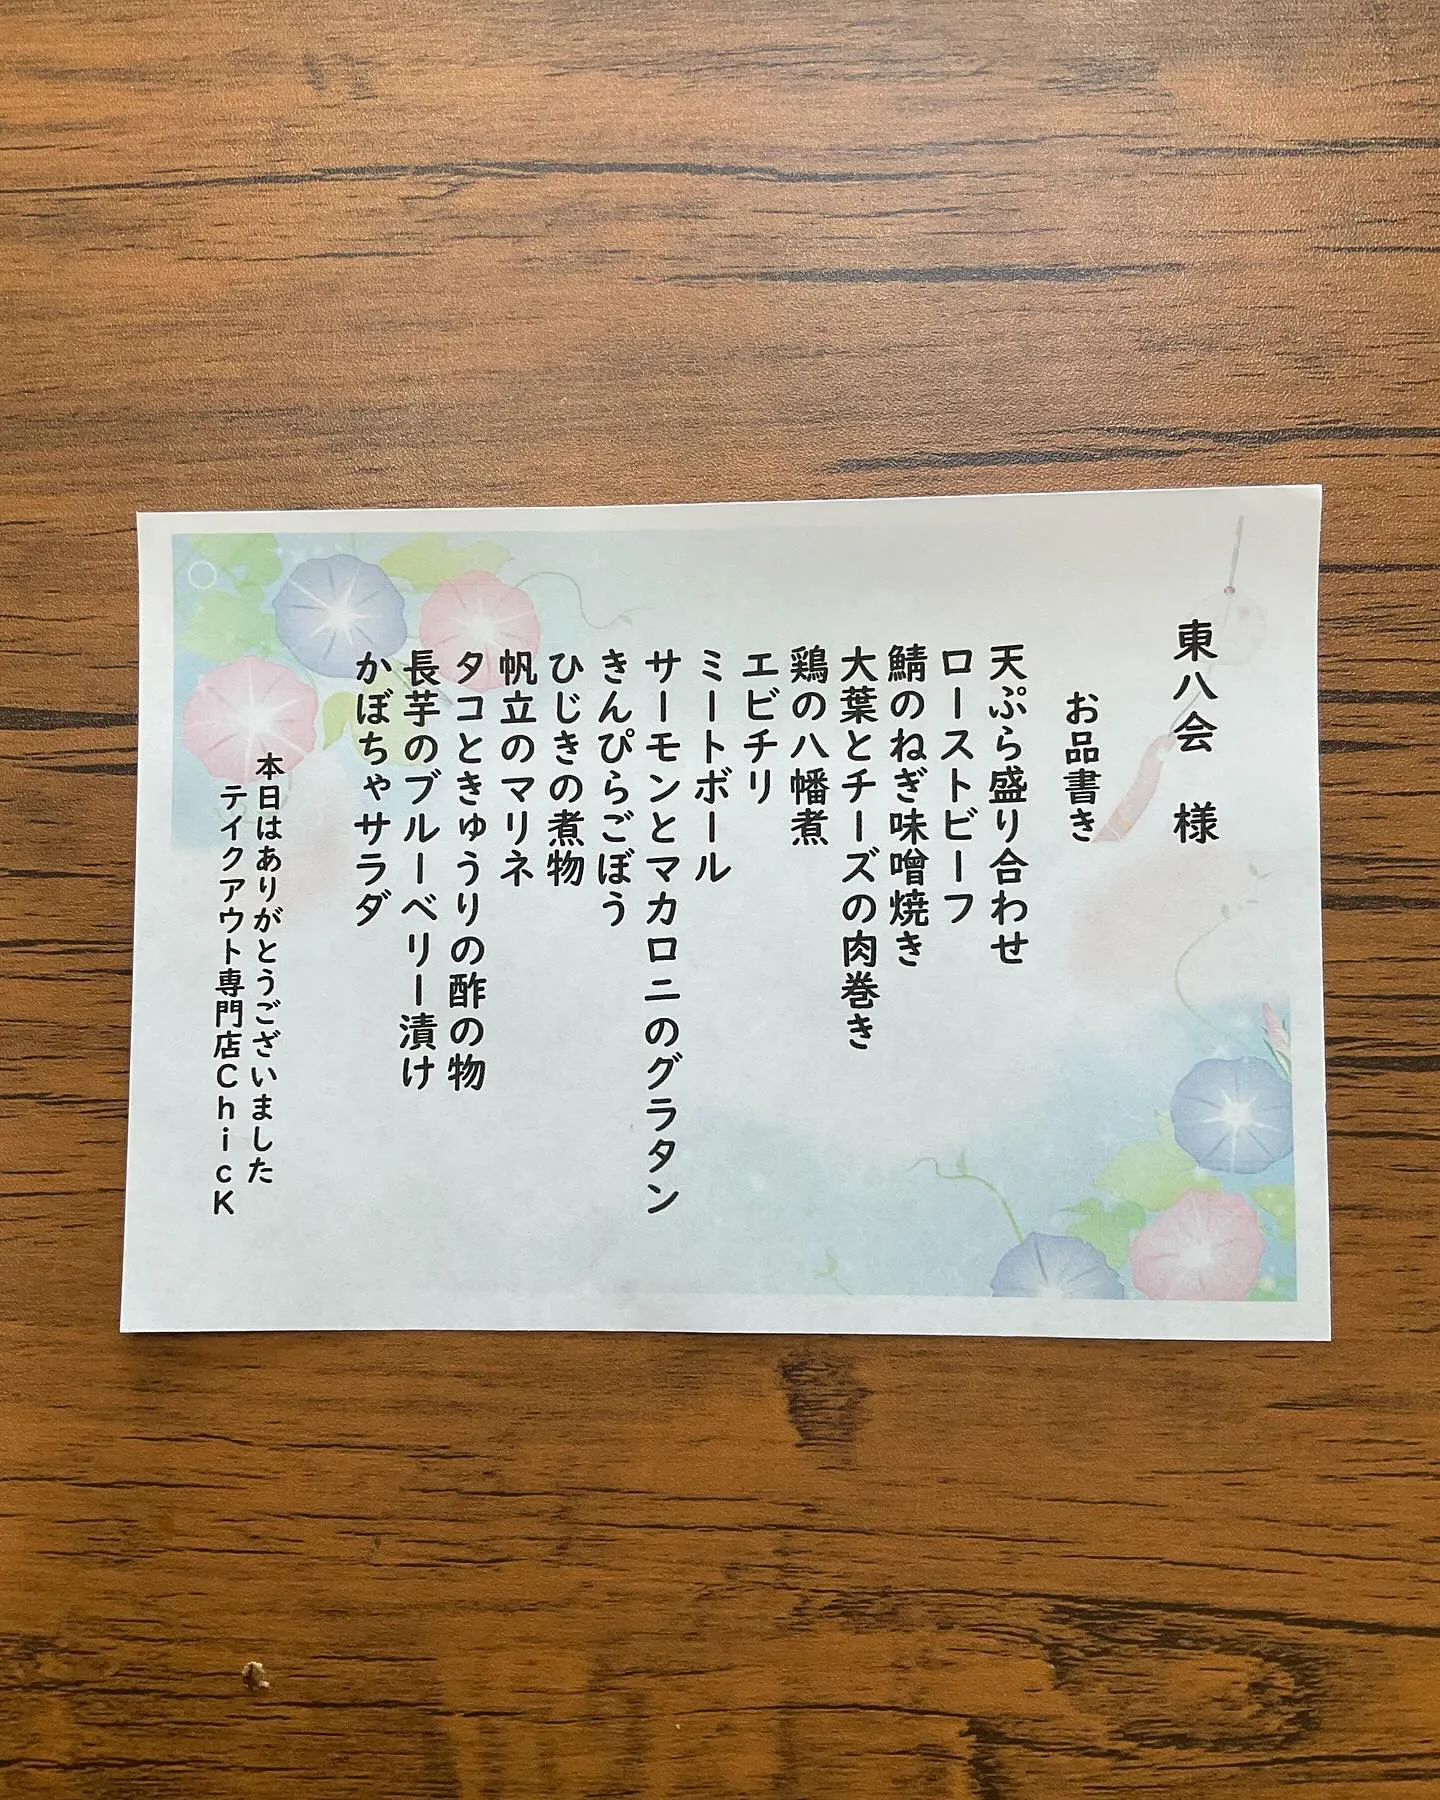 東八会　様
お品書き
天ぷら盛り合わせ
ローストビーフ
鯖のねぎ味噌焼き
大葉とチーズの肉巻き
鶏の八幡煮
エビチリ
ミートボール
サーモンとマカロニのグラタン
きんぴらごぼう
ひじきの煮物
帆立のマリネ
タコときゅうりの酢の物
長芋のブルーベリー漬け
かぼちゃサラダ
本日はありがとうございました
テイクアウト専門店ChicK